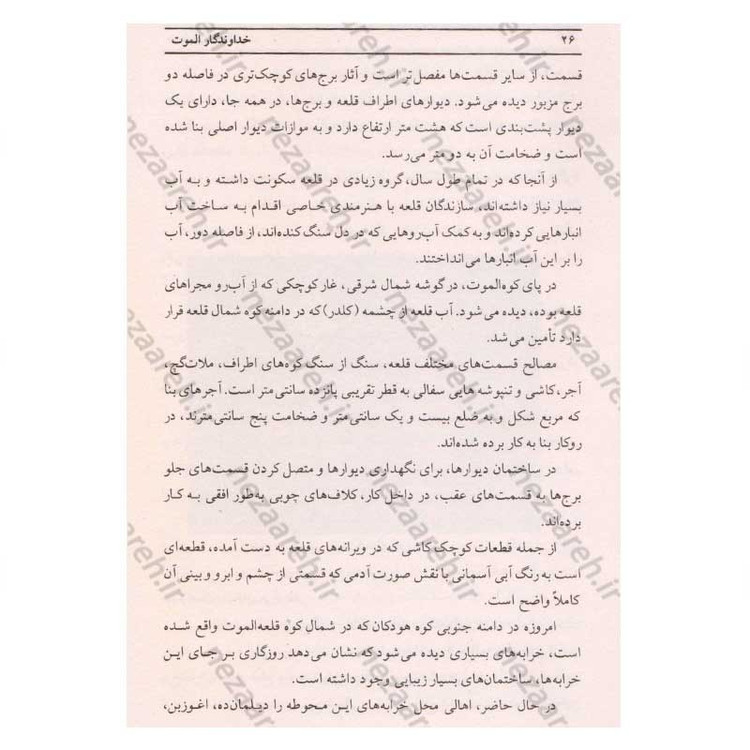 ۲۶ خداوندگار الموت
قسمت، از سایر قسمت‌ها مفصل‌تر است و آثار برج‌های کوچک‌تری در فاصله دو
برج مزبور دیده می‌شود. دیوارهای اطراف قلعه و برج‌ها، در همه جا، دارای یک
دیوار پشت‌بندی است که هشت متر ارتفاع دارد و به موازات دیوار اصلی بنا شده
است و ضخامت آن به دو متر می‌رسد.
از آنجا که در تمام طول سال، گروه زیادی در قلعه سکونت داشته و به آب
بسیار نیاز داشته‌اند، سازندگان قلعه با هنرمندی خاصی اقدام به ساخت آب
انبارهایی کرده‌اند و به کمک آب‌روهایی که در دل سنگ کنده‌اند، از فاصله دور، آب
را بر این آب انبارها می‌انداختند.
در پای کوه الموت، در گوشه شمال شرقی، غار کوچکی که از آب‌رو مجراهای
قلعه بوده، دیده می‌شود. آب قلعه از چشمه (کلدر) که در دامنه کوه شمال قلعه قرار
دارد تأمین می‌شد.
مصالح قسمت‌های مختلف قلعه، سنگ از سنگ کوه‌های اطراف، ملات گچ،
آجر، کاشی و تنپوشه هایی سفالی به قطر تقریبی پانزده سانتی‌متر است. آجرهای بنا
که مربع شکل و به ضلع بیست و یک سانتی‌متر و ضخامت پنج سانتی‌مترند، در
روکار بنا به کار برده شده‌اند.
در ساختمان دیوارها، برای نگهداری دیوارها و متصل کردن قسمت‌های جلو
برج‌ها به قسمت‌های عقب، در داخل کار، کلاف‌های چوبی به‌طور افقی به کار
برده‌اند.
از جمله قطعات کوچک کاشی که در ویرانه‌های قلعه به دست آمده، قطعه‌ای
است به رنگ آبی آسمانی با نقش صورت آدمی که قسمتی از چشم و ابرو و بینی آن
کاملاً واضح است.
امروزه در دامنه جنوبی کوه هودکان که در شمال کوه قلعه‌الموت واقع شده
است، خرابه‌های بسیاری دیده می‌شود که نشان می‌دهد روزگاری بر جای این
خرابه‌ها، ساختمان‌های بسیار زیبایی وجود داشته است.
در حال حاضر، اهالی محل خرابه‌های این محوطه را دیلمان‌ده، اغوزبن،
nezaareh.ir